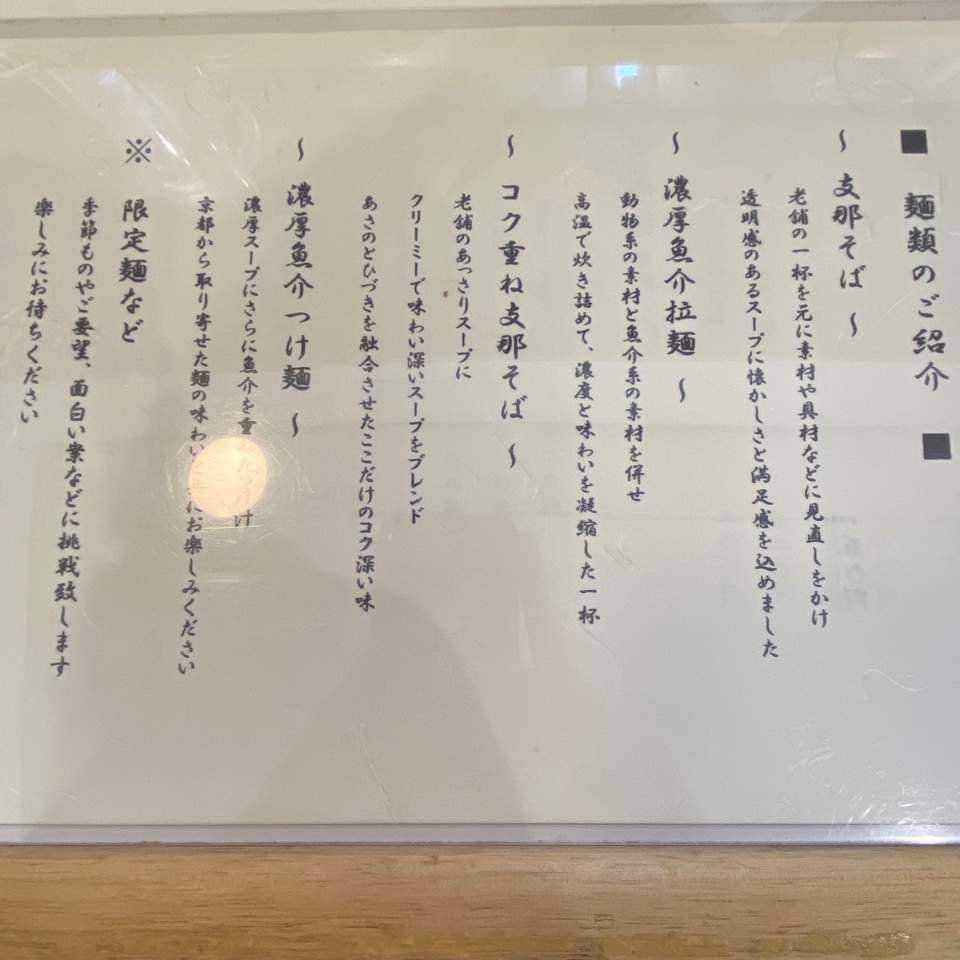 ■ 麺類のご紹介 ■
～ 支那そば ～
老舗の一杯を元に素材や具材などに見直しをかけ
透明感のあるスープに懐かしさと満足感を込めました
～ 濃厚魚介拉麺 ～
動物系の素材と魚介系の素材を併せ
高温で炊き詰めて、濃度と味わいを凝縮した一杯
～ コク重ね支那そば ～
老舗のあっさりスープに
クリーミーで味わい深いスープをブレンド
あさのとひづきを融合させたここだけのコク深い味
～ 濃厚魚介つけ麺 ～
濃厚スープにさらに魚介を重ねたつけ汁
京都から取り寄せた麺の味わい にお楽しみください
※ 限定麺など
季節ものやご要望、面白い案などに挑戦致します
楽しみにお待ちください